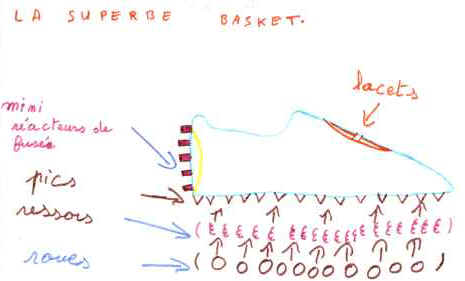 LA SUPERBE BASKET.
lacets
mini
réacteurs de
fusée
pics
ressors
roues